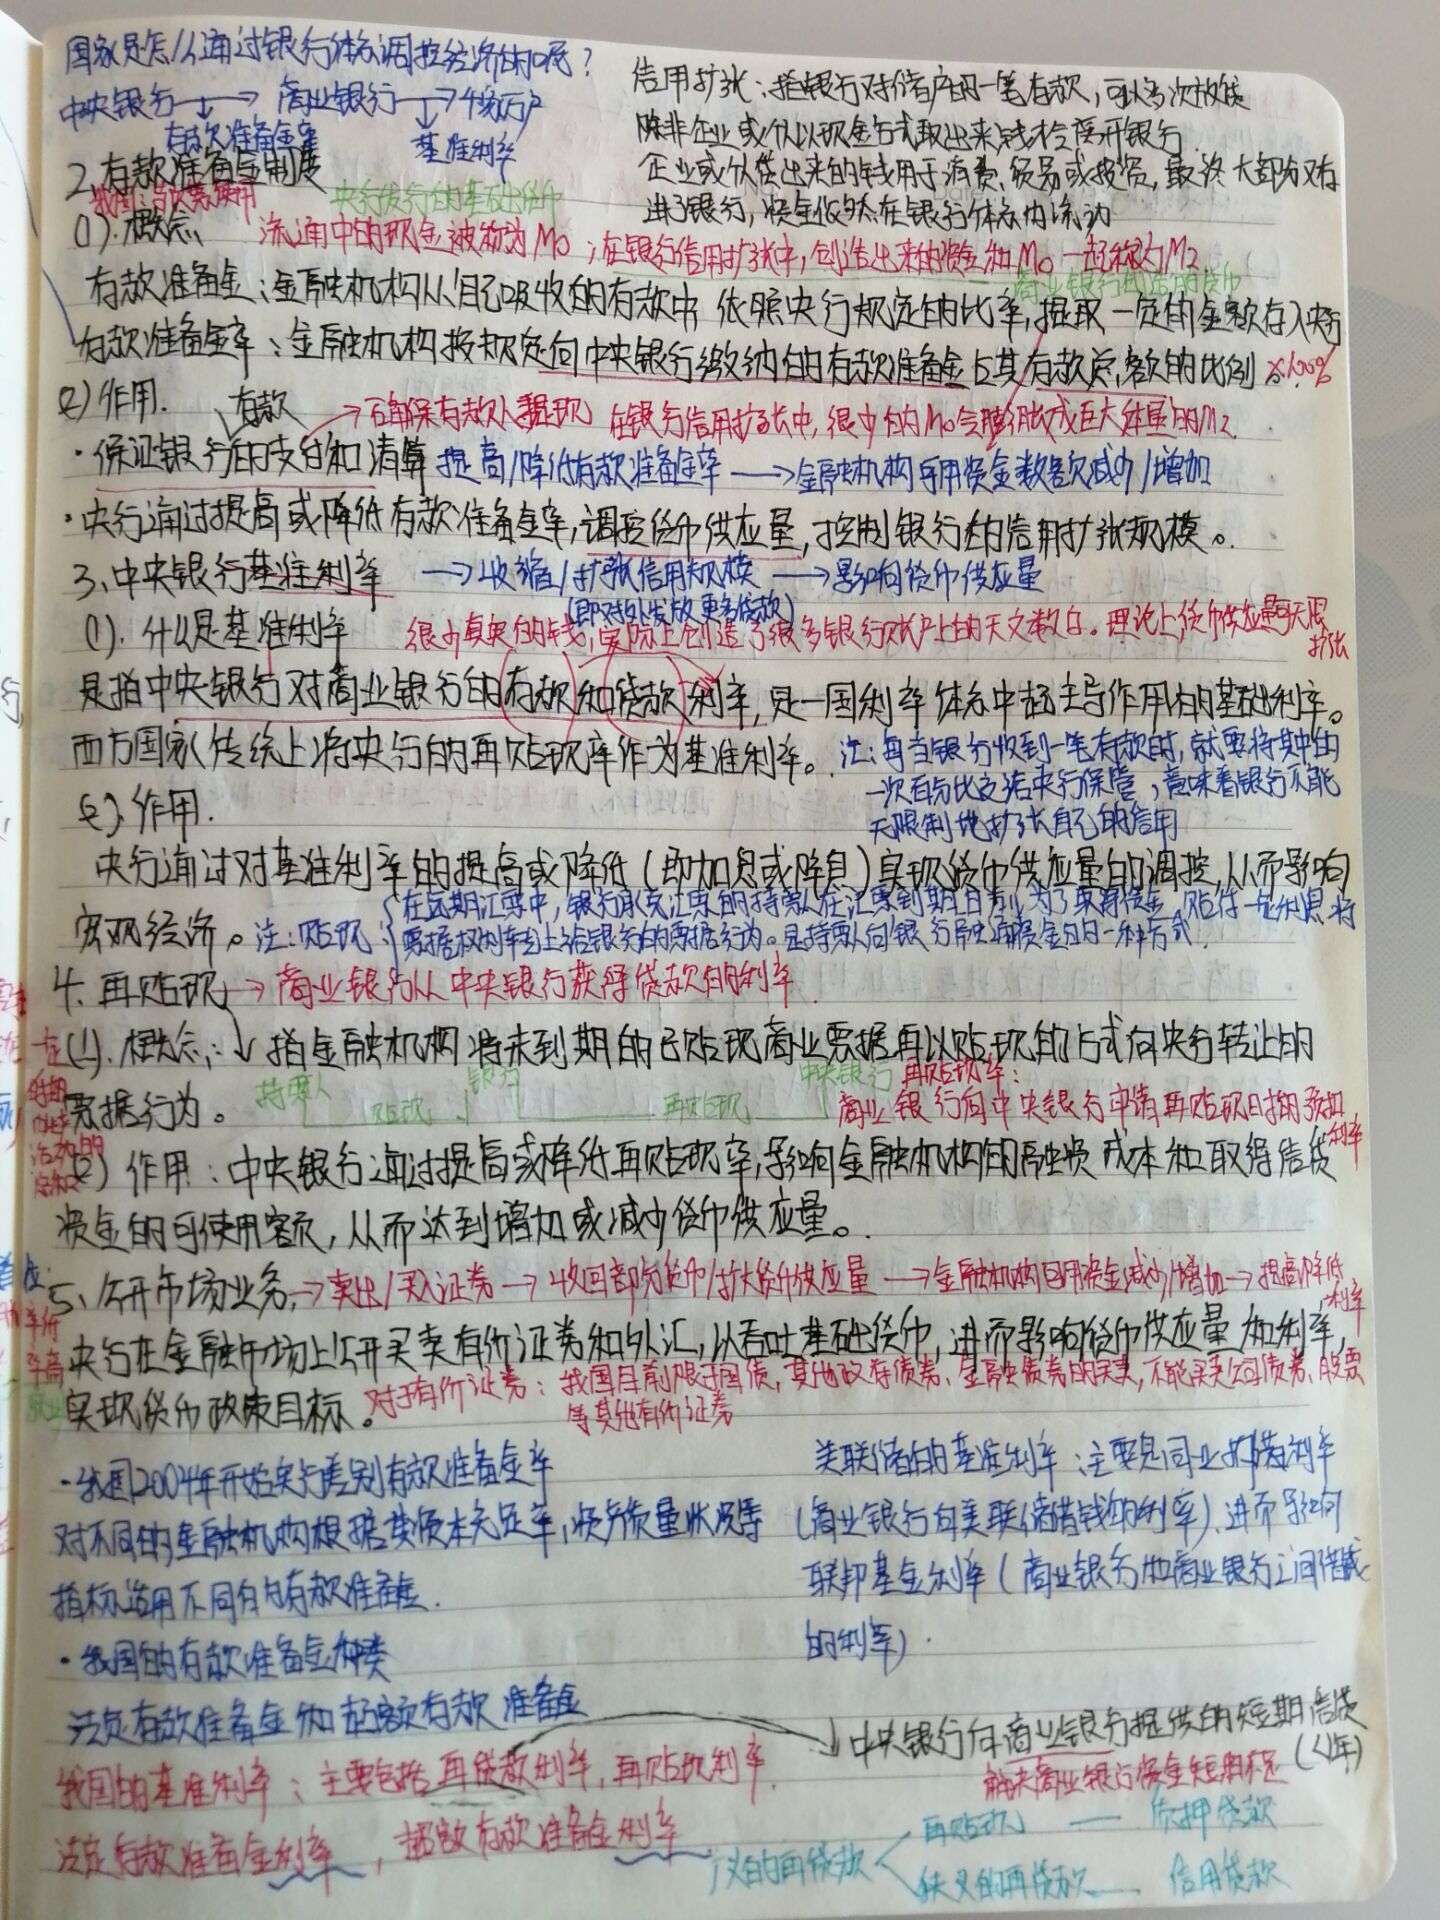 国家是怎么通过银行体系调控经济的呢?
中央银行→商业银行→千家万户
存款准备金率 基准利率
信用扩张:指银行对储户的一笔存款,可以多次放贷
除非企业或个人以现金形式取出来,钱才会离开银行.
企业或个人贷出来的钱用于消费、贸易或投资,最终大部分又存
进了银行,资金依然在银行体系内流动
2、存款准备金制度
我国:最频繁使用 央行发行的基础货币
(1).概念、 流通中的现金被称为M0;在银行信用扩张中,创造出来的资金和M0一起称为M2
商业银行创造的货币
存款准备金:金融机构从自己吸收的存款中,依照央行规定的比率,提取一定的金额存入央行
存款准备金率:金融机构按规定向中央银行缴纳的存款准备金占其存款总额的比例。×100%
(2)作用.
存款 →确保存款人提现 在银行信用扩张中,很少的M0会膨胀成巨大体量的M2
·保证银行的支付和清算 提高/降低存款准备金率→金融机构可用资金数额减少/增加
·央行通过提高或降低存款准备金率,调控货币供应量,控制银行的信用扩张规模。
3、中央银行基准利率 →收缩/扩张信用规模→影响货币供应量
(即对外发放更多贷款)
(1).什么是基准利率 很少真实的钱,实际上创造了很多银行账户上的天文数字。理论上,货币供应量可无限扩张
是指中央银行对商业银行的存款和贷款利率,是一国利率体系中起主导作用的基础利率。
西方国家传统上将央行的再贴现率作为基准利率。 注:每当银行收到一笔存款时,就要将其中的
一定百分比交给央行保管,意味着银行不能
无限制地扩张自己的信用
(2)、作用.
央行通过对基准利率的提高或降低(即加息或降息)实现货币供应量的调控,从而影响
宏观经济。注:贴现:在远期汇票中,银行承兑汇票的持票人在汇票到期日前,为了取得资金,贴付一定利息将
票据权利转让给银行的票据行为。是持票人向银行融通资金的一种方式.
4、再贴现→商业银行从中央银行获得贷款的利率.
(1).概念:↓指金融机构将未到期的已贴现商业票据再以贴现的方式向央行转让的
持票人 贴现 银行 再贴现 中央银行 再贴现率:
票据行为。 商业银行向中央银行申请再贴现时的预扣利率
(2)作用:中央银行通过提高或降低再贴现率,影响金融机构的融资成本和取得信贷
资金的可使用额,从而达到增加或减少货币供应量。
5、公开市场业务,→卖出/买入证券→收回部分货币/扩大货币供应量→金融机构可用资金减少/增加→提高/降低利率
央行在金融市场上公开买卖有价证券和外汇,以吞吐基础货币,进而影响货币供应量和利率,
实现货币政策目标。对于有价证券:我国目前限于国债,其他政府债券、金融债券的买卖,不能买卖公司债券、股票
等其他有价证券
·我国2004年开始实行差别存款准备金率
对不同的金融机构根据其资本充足率,资产质量状况等
指标适用不同的存款准备金.
·我国的存款准备金种类
法定存款准备金和超额存款准备金
美联储的基准利率:主要是同业拆借利率
(商业银行向美联储借钱的利率),进而影响
联邦基金利率(商业银行和商业银行之间借贷
的利率).
我国的基准利率:主要包括再贷款利率,再贴现利率.
法定存款准备金利率,超额存款准备金利率
中央银行向商业银行提供的短期信贷
(<1年)
解决商业银行资金短期不足
广义的再贷款 再贴现 — 质押贷款
狭义的再贷款 — 信用贷款